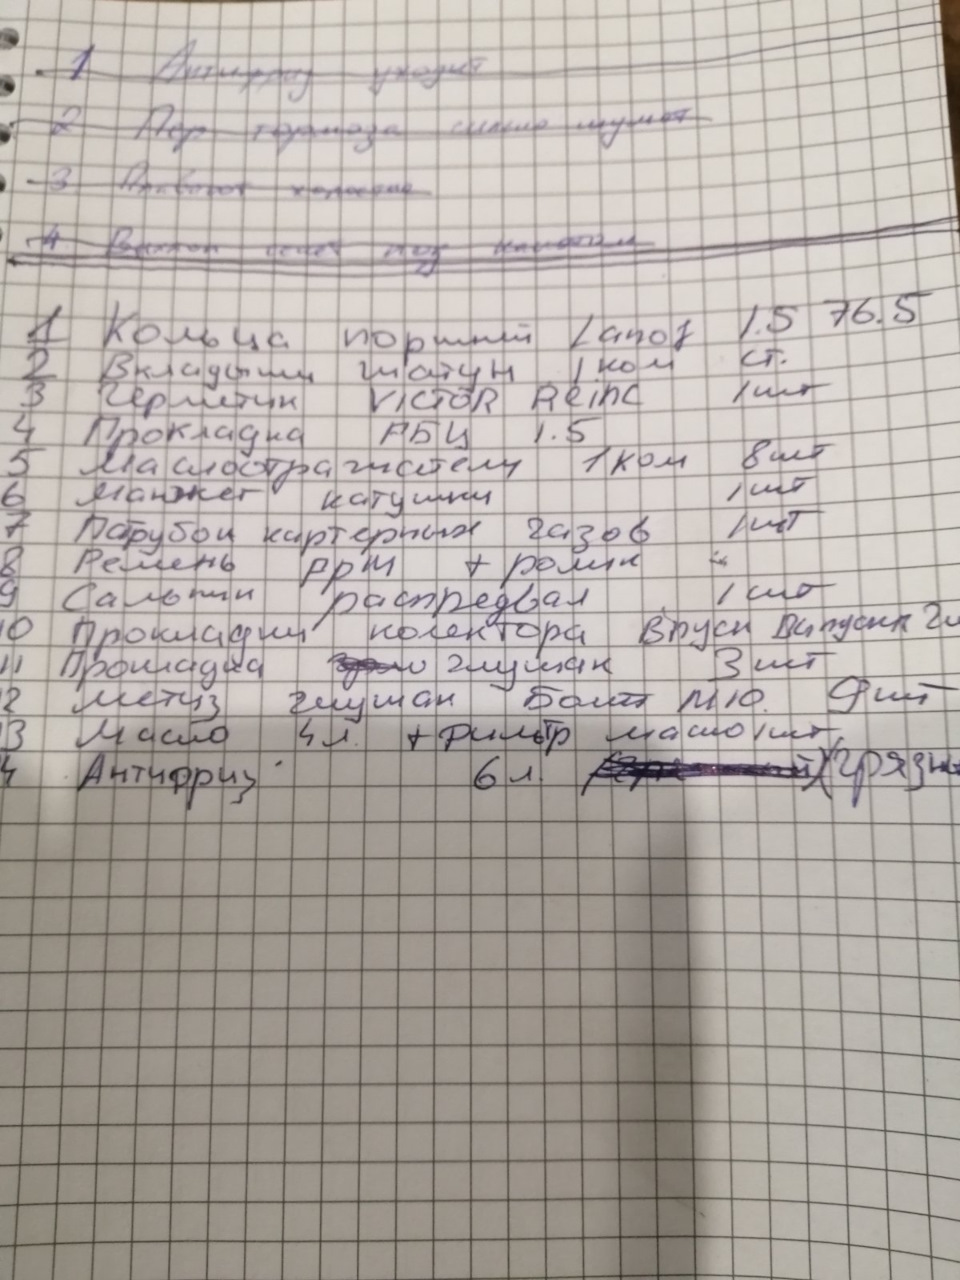 1 Антифриз уходит
2 Пер тормоза сильно шумят
3
4 под
1 Кольца поршний Lanos 1.5 76.5
2 Вкладыши шатун 1 ком ст.
3 Герметик VICTOR REINC 1 шт
4 Прокладка РБЦ 1.5
5 Маслостражатели 1 ком 8 шт
6 Манжет катушки 1 шт
7 Патрубок картерных газов 1 шт
8 Ремень ГРМ + ролик "
9 Сальник распредвал 1 шт
10 Прокладки колектора Впуск Випуск 2
11 Прокладка глушак 3 шт
12 метиз глушак Болт М10. 9 шт
13 Масло 4 л. + фильтр масло 1 шт
4 Антифриз 6 л. (грязн